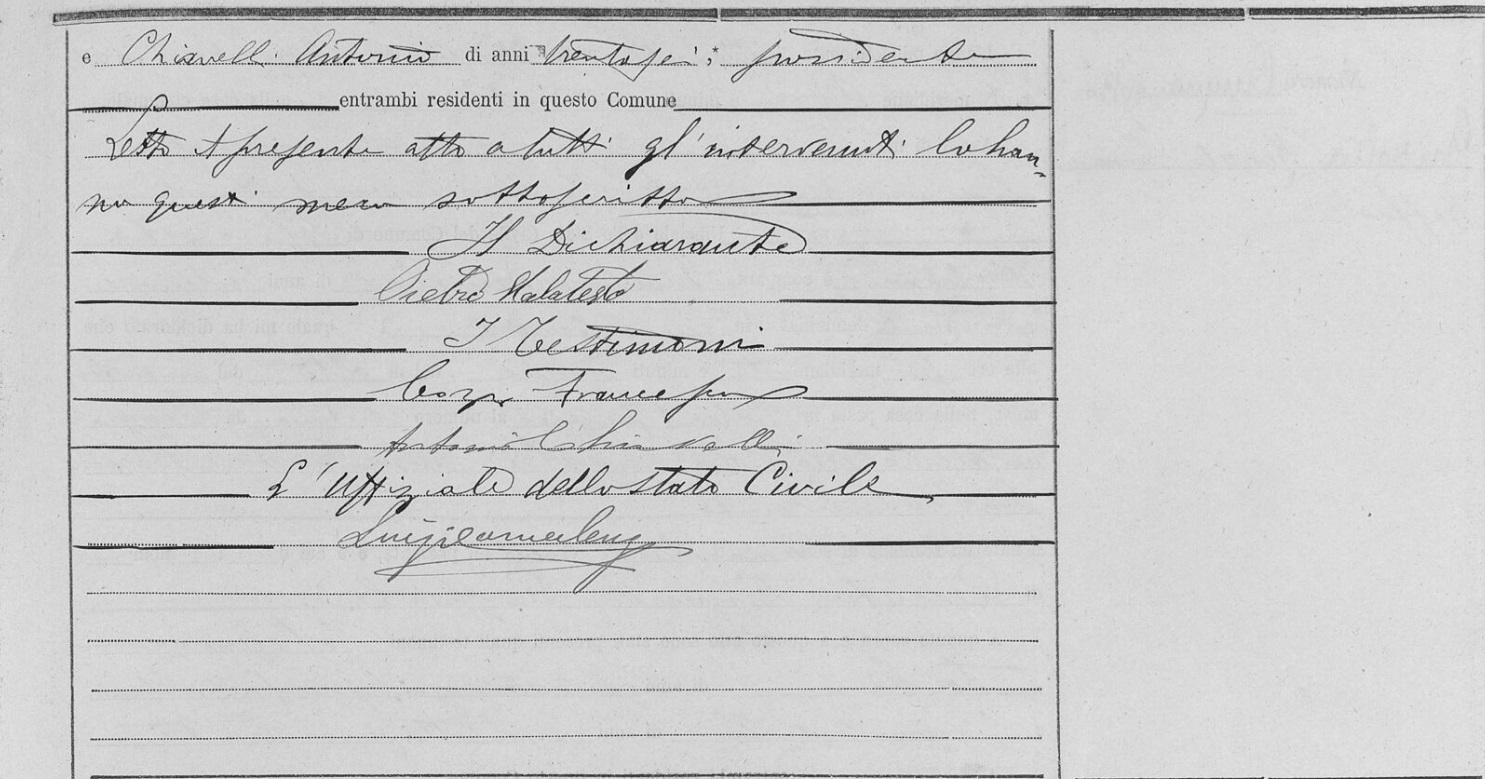 e Chiavelli Antonio di anni trentasei possidente
entrambi residenti in questo Comune
Letto il presente atto a tutti gl'intervenuti lo han-
no questi meco sottoscritto
Il Dichiarante
Pietro Malatesta
I Testimoni
Francesco
Antonio Chiavelli
L'Uffiziale dello Stato Civile
Luigi